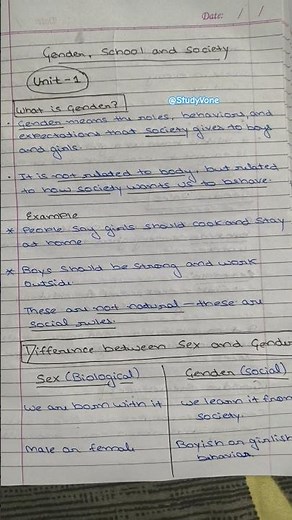 Date: / /
Gender, School and Society
Unit-1
@StudyVone
What is Gender?
• Gender means the roles, behaviors, and
expectations that society gives to boys
and girls.
• It is not related to body, but related
to how society wants us to behave.
Example
* People say girls should cook and stay
at home
* Boys should be strong and work
outside.
These are not natural – these are
social rules.
Difference between Sex and Gender
Sex (Biological)
Gender (Social)
We are born with it
We learn it from
society.
Male or female
Boyish or girlish
behavior